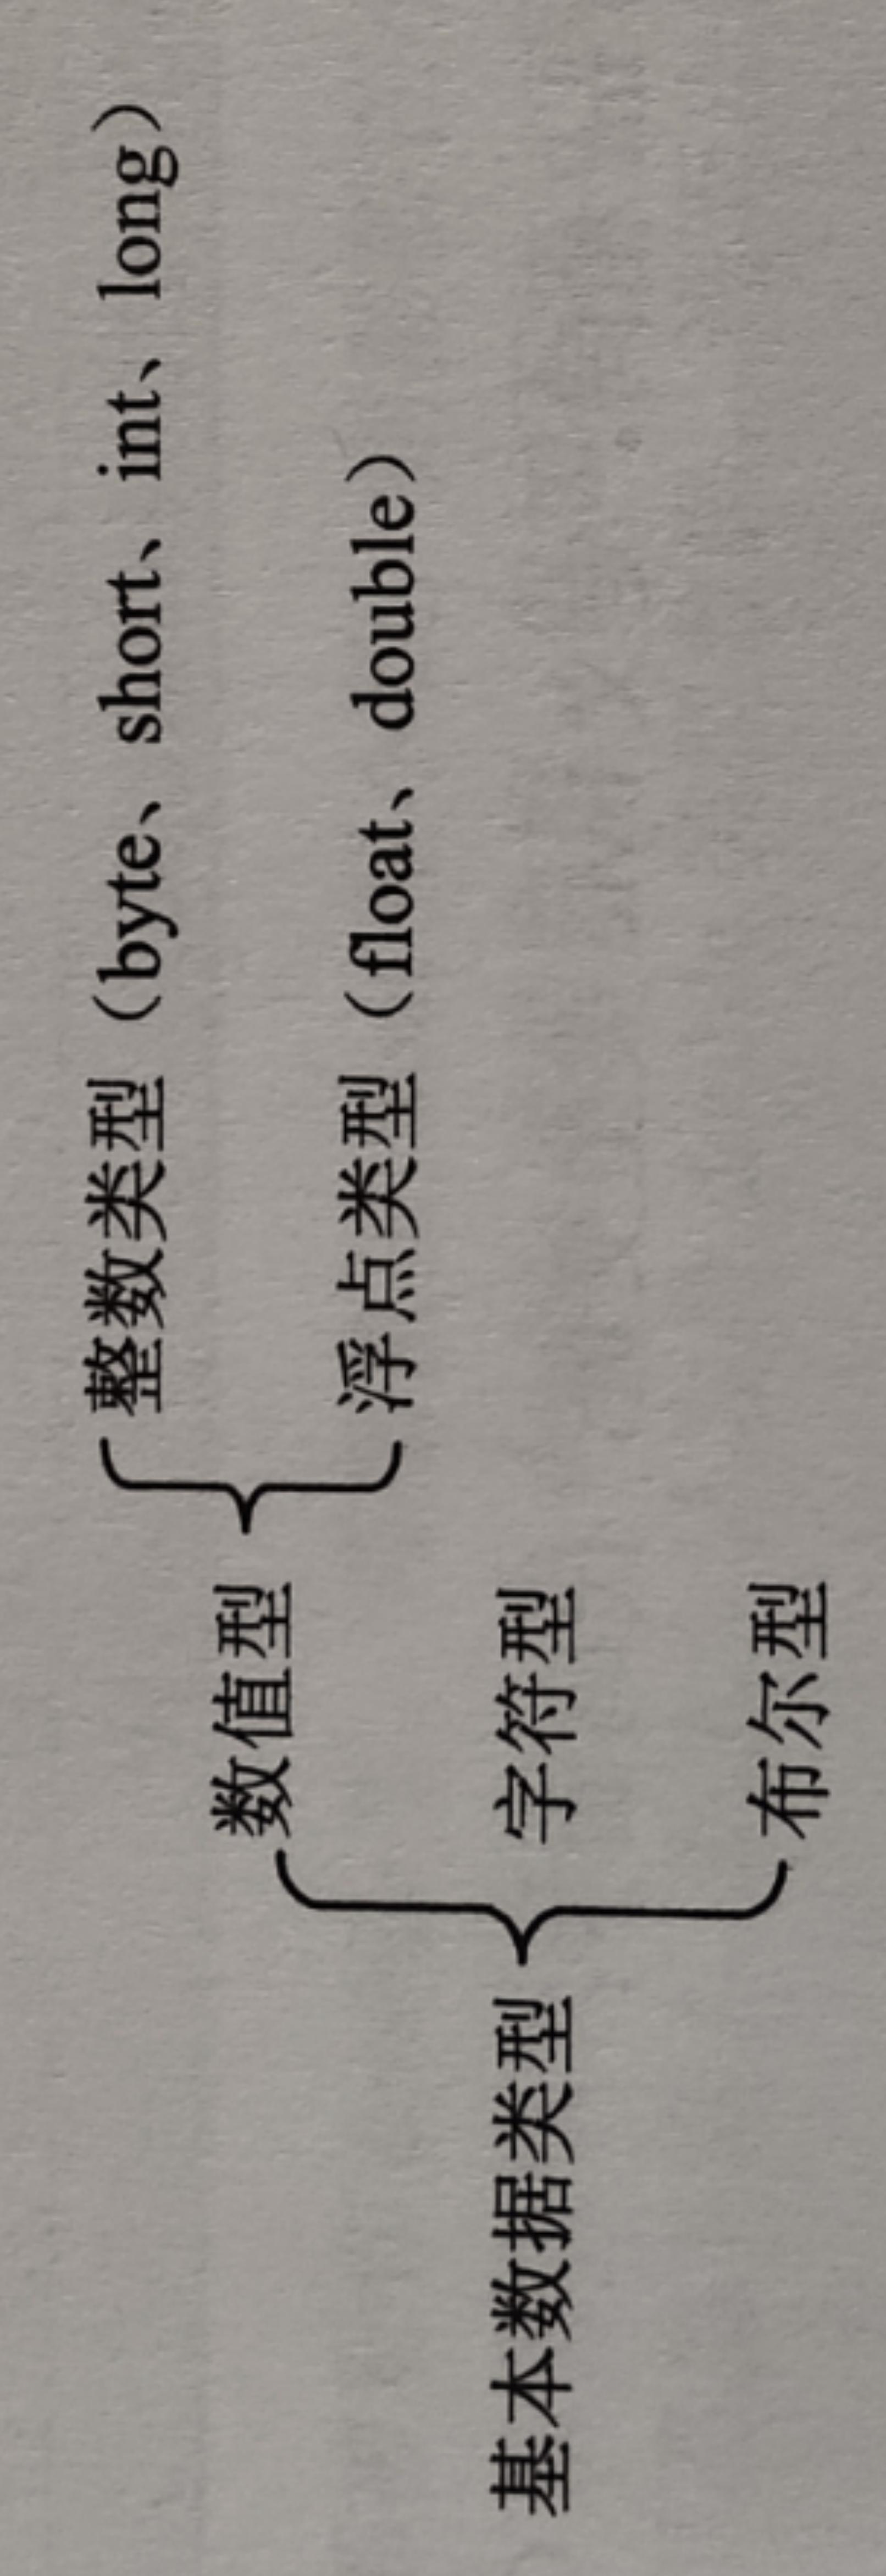 整数类型（byte、short、int、long）
数值型
浮点类型（float、double）
基本数据类型
字符型
布尔型